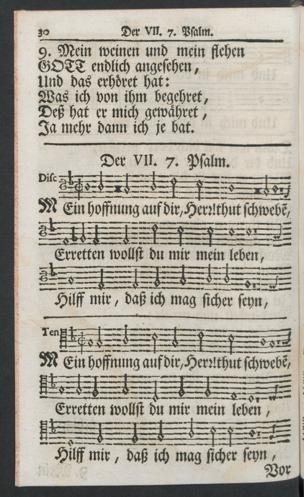 30 Der VII. 7. Psalm.
9. Mein weinen und mein flehen
GOTT endlich angesehen,
Und das erhöret hat:
Was ich von ihm begehret,
Deß hat er mich gewähret,
Ja mehr dann ich je bat.
Der VII. 7. Psalm.
Disc
MEin hoffnung auf dir, Herr! thut schwebẽ,
Erretten wollst du mir mein leben,
Hilff mir, daß ich mag sicher seyn,
Ten
MEin hoffnung auf dir, Herr! thut schwebẽ,
Erretten wollst du mir mein leben,
Hilff mir, daß ich mag sicher seyn,
Vor